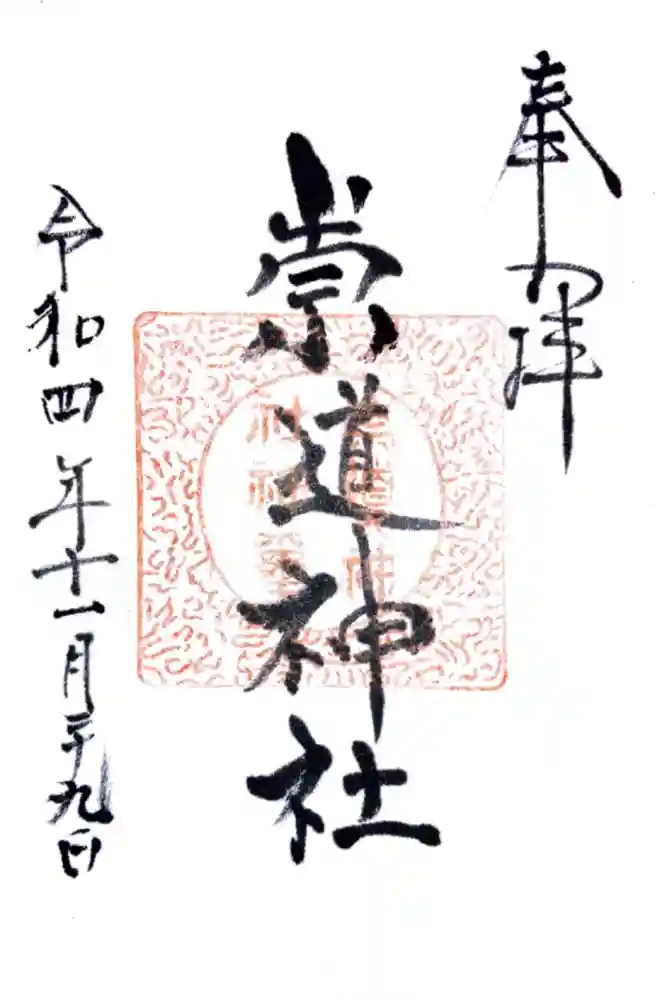 奉拝
崇道神社
令和四年十一月二十九日